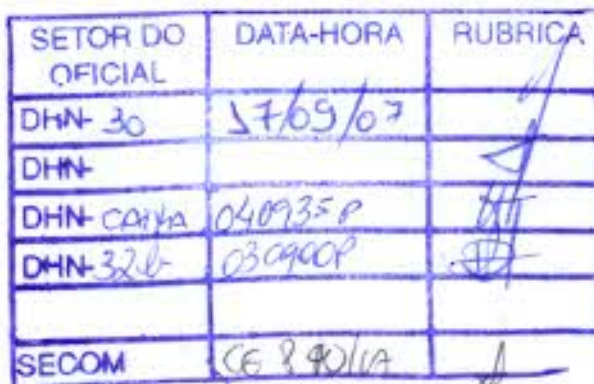 SETOR DO OFICIAL DATA-HORA RUBRICA
DHN-30 17/09/07
DHN-
DHN-CAIXA 040935P
DHN-32b 030900P
SECOM